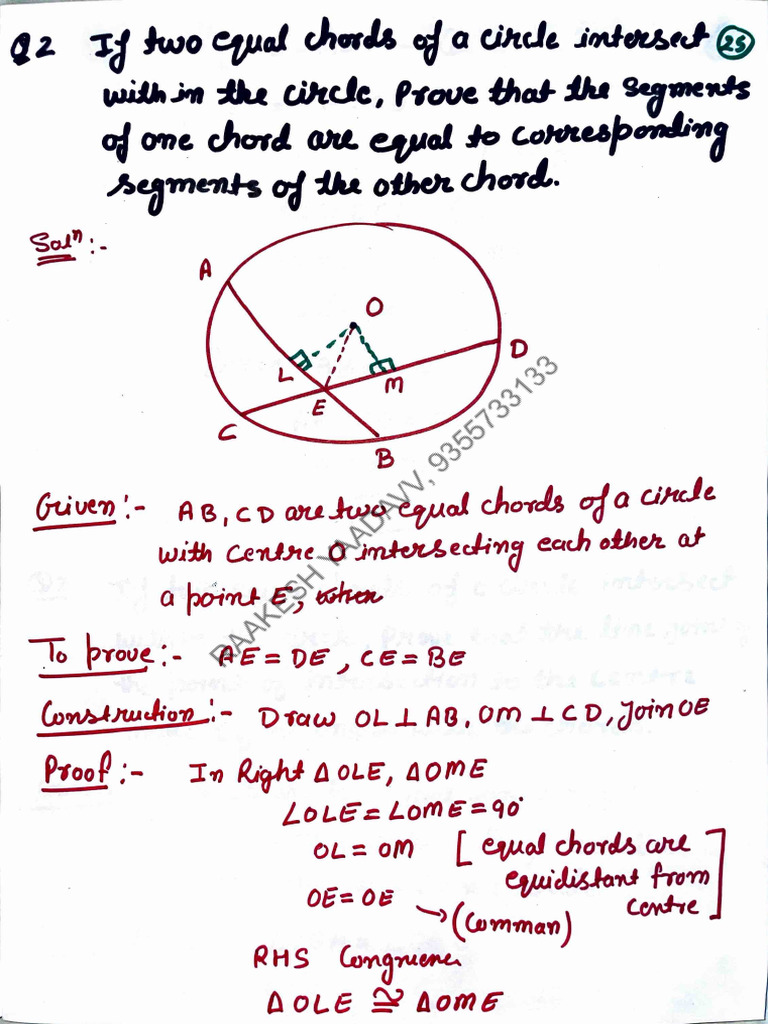 Q2 If two equal chords of a circle intersect 25
with in the circle, Prove that the segments
of one chord are equal to corresponding
segments of the other chord.
Solⁿ :-
A
O
D
L
M
E
C
B
Given :- AB, CD are two equal chords of a circle
with centre O intersecting each other at
a point E,
To prove :- AE = DE, CE = BE
Construction :- Draw OL ⊥ AB, OM ⊥ CD, Join OE
Proof :- In Right Δ OLE, Δ OME
∠OLE = ∠OME = 90°
OL = OM [equal chords are
equidistant from
centre]
OE = OE → (Comman)
RHS Congruence
Δ OLE ≅ Δ OME
RAAKESH YAADAVV, 9355733133